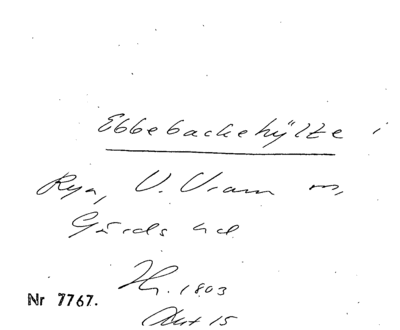 Ebbebackehÿltze i
Rya, V. Vram m,
Gärds hd
H. 1803
Akt 15
Nr 7767.